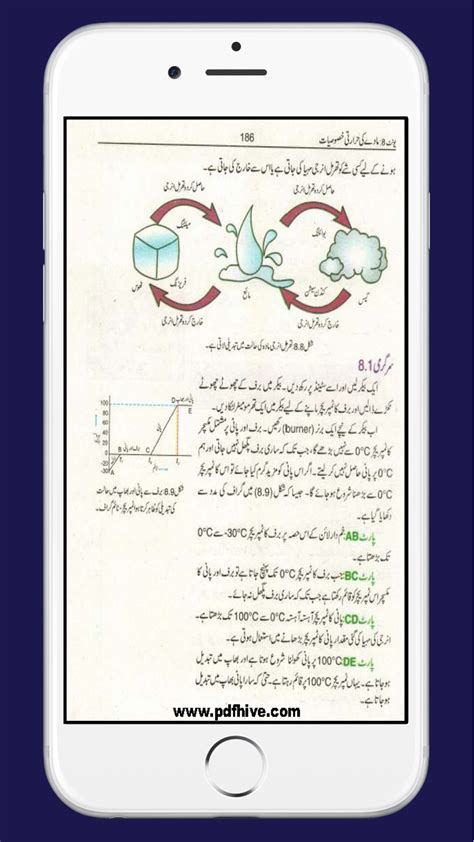 یونٹ 8: مادے کی حرارتی خصوصیات
186
ہونے کے لیے کسی شے کو تھرمل انرجی مہیا کی جاتی ہے یا اس سے خارج کی جاتی ہے۔
حاصل کردہ تھرمل انرجی
حاصل کردہ تھرمل انرجی
بوائلنگ
میلٹنگ
گیس
کنڈن سیشن
مائع
فریزنگ
ٹھوس
خارج کردہ تھرمل انرجی
خارج کردہ تھرمل انرجی
شکل 8.8 تھرمل انرجی مادہ کی حالت میں تبدیلی لاتی ہے۔
سرگرمی 8.1
ایک بیکر لیں اور اسے سٹینڈ پر رکھ دیں۔ بیکر میں برف کے چھوٹے چھوٹے
ٹکڑے ڈالیں اور برف کا ٹمپریچر ماپنے کے لیے بیکر میں ایک تھرمومیٹر لٹکا دیں۔
اب بیکر کے نیچے ایک برنر (burner) رکھیں۔ برف اور پانی پر مشتمل مکسچر
کا ٹمپریچر 0°C سے نہیں بڑھے گا، جب تک کہ ساری برف پگھل نہیں جاتی اور ہم
0°C پر پانی حاصل نہیں کر لیتے۔ اگر اس پانی کو مزید گرم کیا جائے تو اس کا ٹمپریچر
0°C سے بڑھنا شروع ہو جائے گا۔ جیسا کہ شکل (8.9) میں گراف کی مدد سے
دکھایا گیا ہے۔
100
80
60
40
20
0
-30
A
B
C
D
E
شکل 8.9 برف سے پانی اور بھاپ میں حالت
کی تبدیلی کو ظاہر کرتا ہوا ٹمپریچر، ٹائم گراف۔
پارٹ AB: خم دار لائن کے اس حصہ پر برف کا ٹمپریچر -30°C سے 0°C
تک بڑھتا ہے۔
پارٹ BC: جب برف کا ٹمپریچر 0°C تک پہنچ جاتا ہے تو برف اور پانی کا
مکسچر اس ٹمپریچر کو قائم رکھتا ہے جب تک کہ ساری برف پگھل نہ جائے۔
پارٹ CD: پانی کا ٹمپریچر آہستہ آہستہ 0°C سے 100°C تک بڑھتا ہے۔
انرجی کی مہیا کی گئی مقدار پانی کا ٹمپریچر بڑھانے میں استعمال ہوتی ہے۔
پارٹ DE: 100°C پر پانی کھولنا شروع ہوتا ہے اور بھاپ میں تبدیل
ہو جاتا ہے۔ یہاں ٹمپریچر 100°C پر قائم رہتا ہے۔ حتیٰ کہ سارا پانی بھاپ میں تبدیل
ہو جاتا ہے۔
www.pdfhive.com